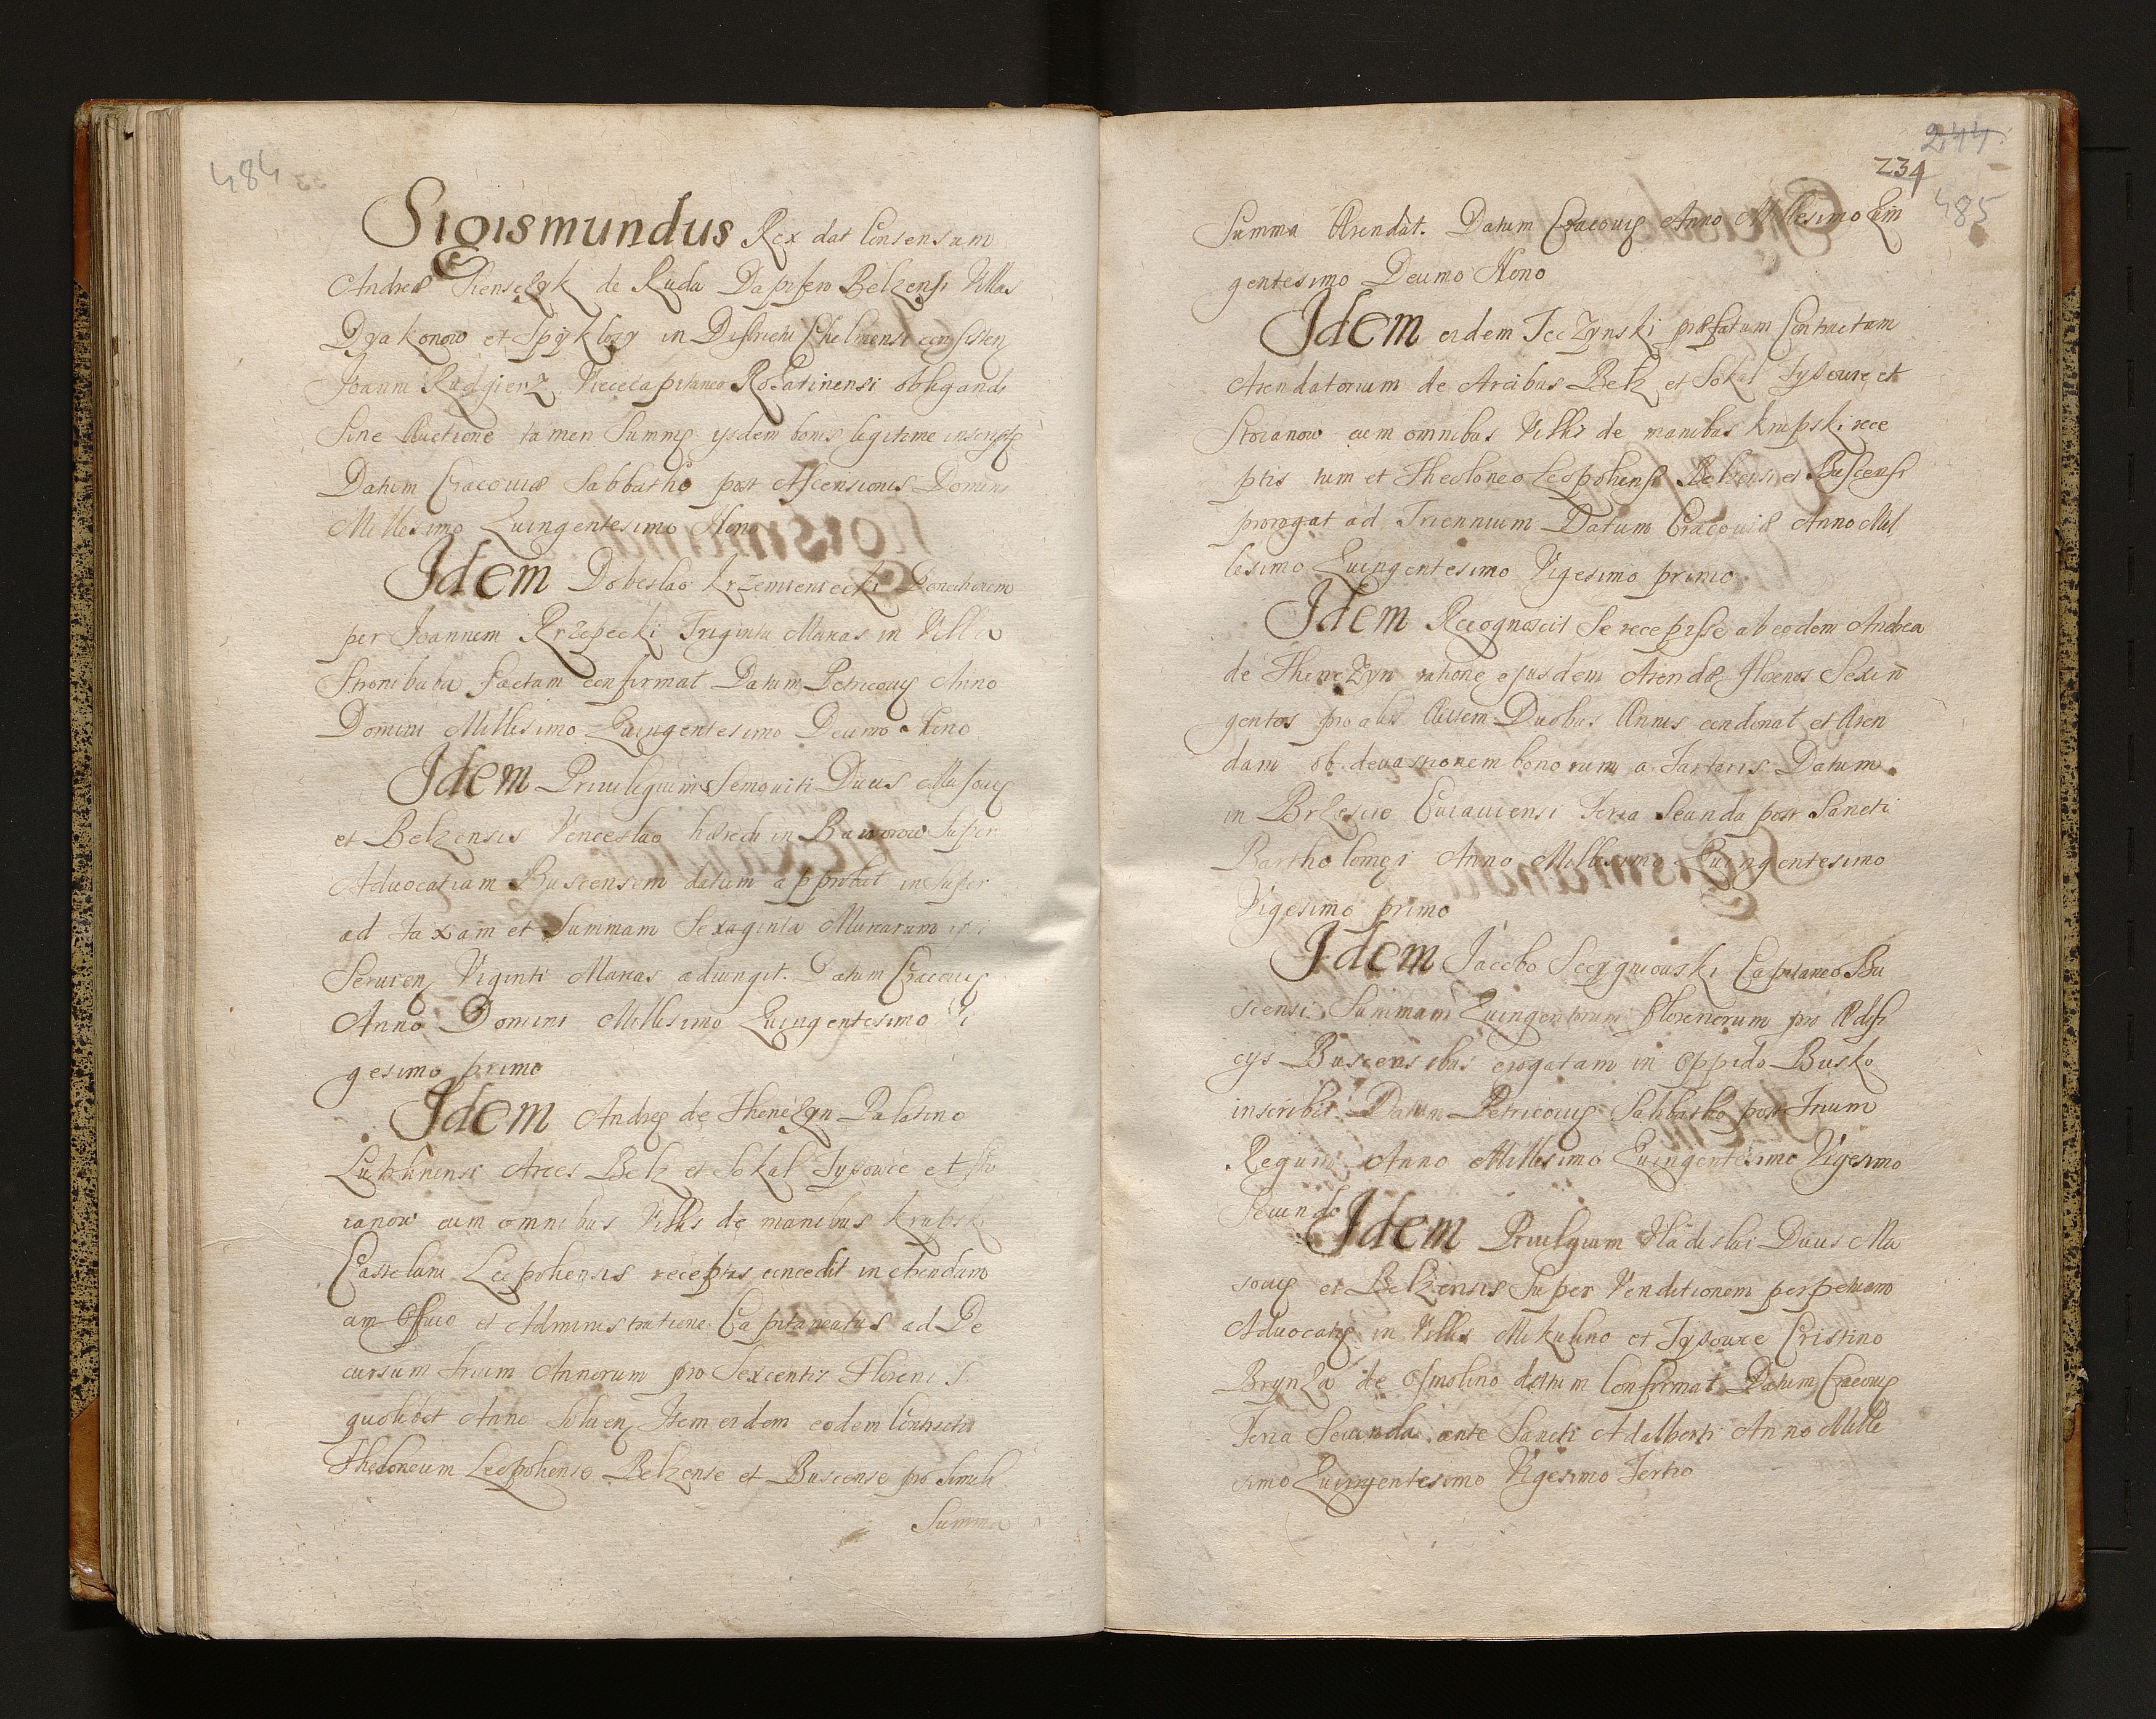 484
Sigismundus Rex dat Consensum
Andreæ de Ruda Dapifero Belzensi Villas
Dyakonow et in Districtu Chelmensi consisten
Joanni Rudgierz Vicecapitaneo Rohatinensi obligandi
Sine Auctione tamen Summę ysdem bonis legitime inscriptę
Datum Cracouiæ Sabbatho post Ascensionis Domini
Millesimo Quingentesimo Nono
Idem Dobeslao Krzemieniecki Donationem
per Joannem Krzepecki Triginta Marcas in Villa
Stronibaba factam confirmat Datum Petricouię Anno
Domini Millesimo Quingentesimo Decimo Nono
Idem Priuilegium Semouiti Ducis Masouię
et Belzensis Venceslao hæredi in Baworow super
Aduocatiam Buscensem datum approbat insuper
ad taxam et Summam Sexaginta Marcarum
Seruien Viginti Marcas adiungit. Datum Cracouię
Anno Domini Millesimo Quingentesimo Vi
gesimo primo
Idem Andreę de Thenczyn Palatino
Lublinensi Arces Belz et Sokal Tyssowce et Sto
ianow cum omnibus Villis de manibus Krupski
Castelani Leopoliensis receptas concedit in Arendam
cum Officio et Administratione Capitaneatus ad De
cursum trium Annorum pro Sexcentis Florenis
quolibet Anno Soluen Item eidem eodem Contractu
Theloneum Leopoliense Belzense et Buscense pro simili
Summa
244
234
485
Summa Arendat. Datum Cracouię Anno Millesimo Quin
gentesimo Decimo Nono
Idem eidem Teczynski præfatum Contractum
Arendatorium de Arcibus Belz et Sokal Tyssowce et
Stoianow cum omnibus Villis de manibus Krupski rece
ptis tum et Theoloneo Leopoliensi Belzensi et Buscensi
prorogat ad Triennium Datum Cracouiæ Anno Mil
lesimo Quingentesimo Vigesimo primo
Idem Recognoscit Se recepisse ab eodem Andrea
de Thenczyn ratione ejusdem Arendæ Florenos Sexin
gentos pro alis Autem Duobus Annis condonat et Aren
dam ob deuastionem bonorum a Tartaris Datum
in Brzescie Cuiauiensi Feria Secunda post Sancti
Bartholomęi Anno Millesimo Quingentesimo
Vigesimo primo
Idem Jacobo Capitaneo Bu
scensi Summam Quingentorum florenorum pro Ædifi
cys Buscensibus erogatam in Oppido Busko
inscribit Datum Petricouię Sabbatho post Trium
Regum Anno Millesimo Quingentesimo Vigesimo
Secundo
Idem Priuilegium Vladislai Ducis Ma
souię et Belzensis Super Venditionem perpetuam
Aduocatię in Villis Mikulino et Tyssowce Cristino
Brynza de Osmolino datum Confirmat Datum Cracouię
Feria Secunda ante Sancti Adalberti Anno Mille
simo Quingentesimo Vigesimo Tertio